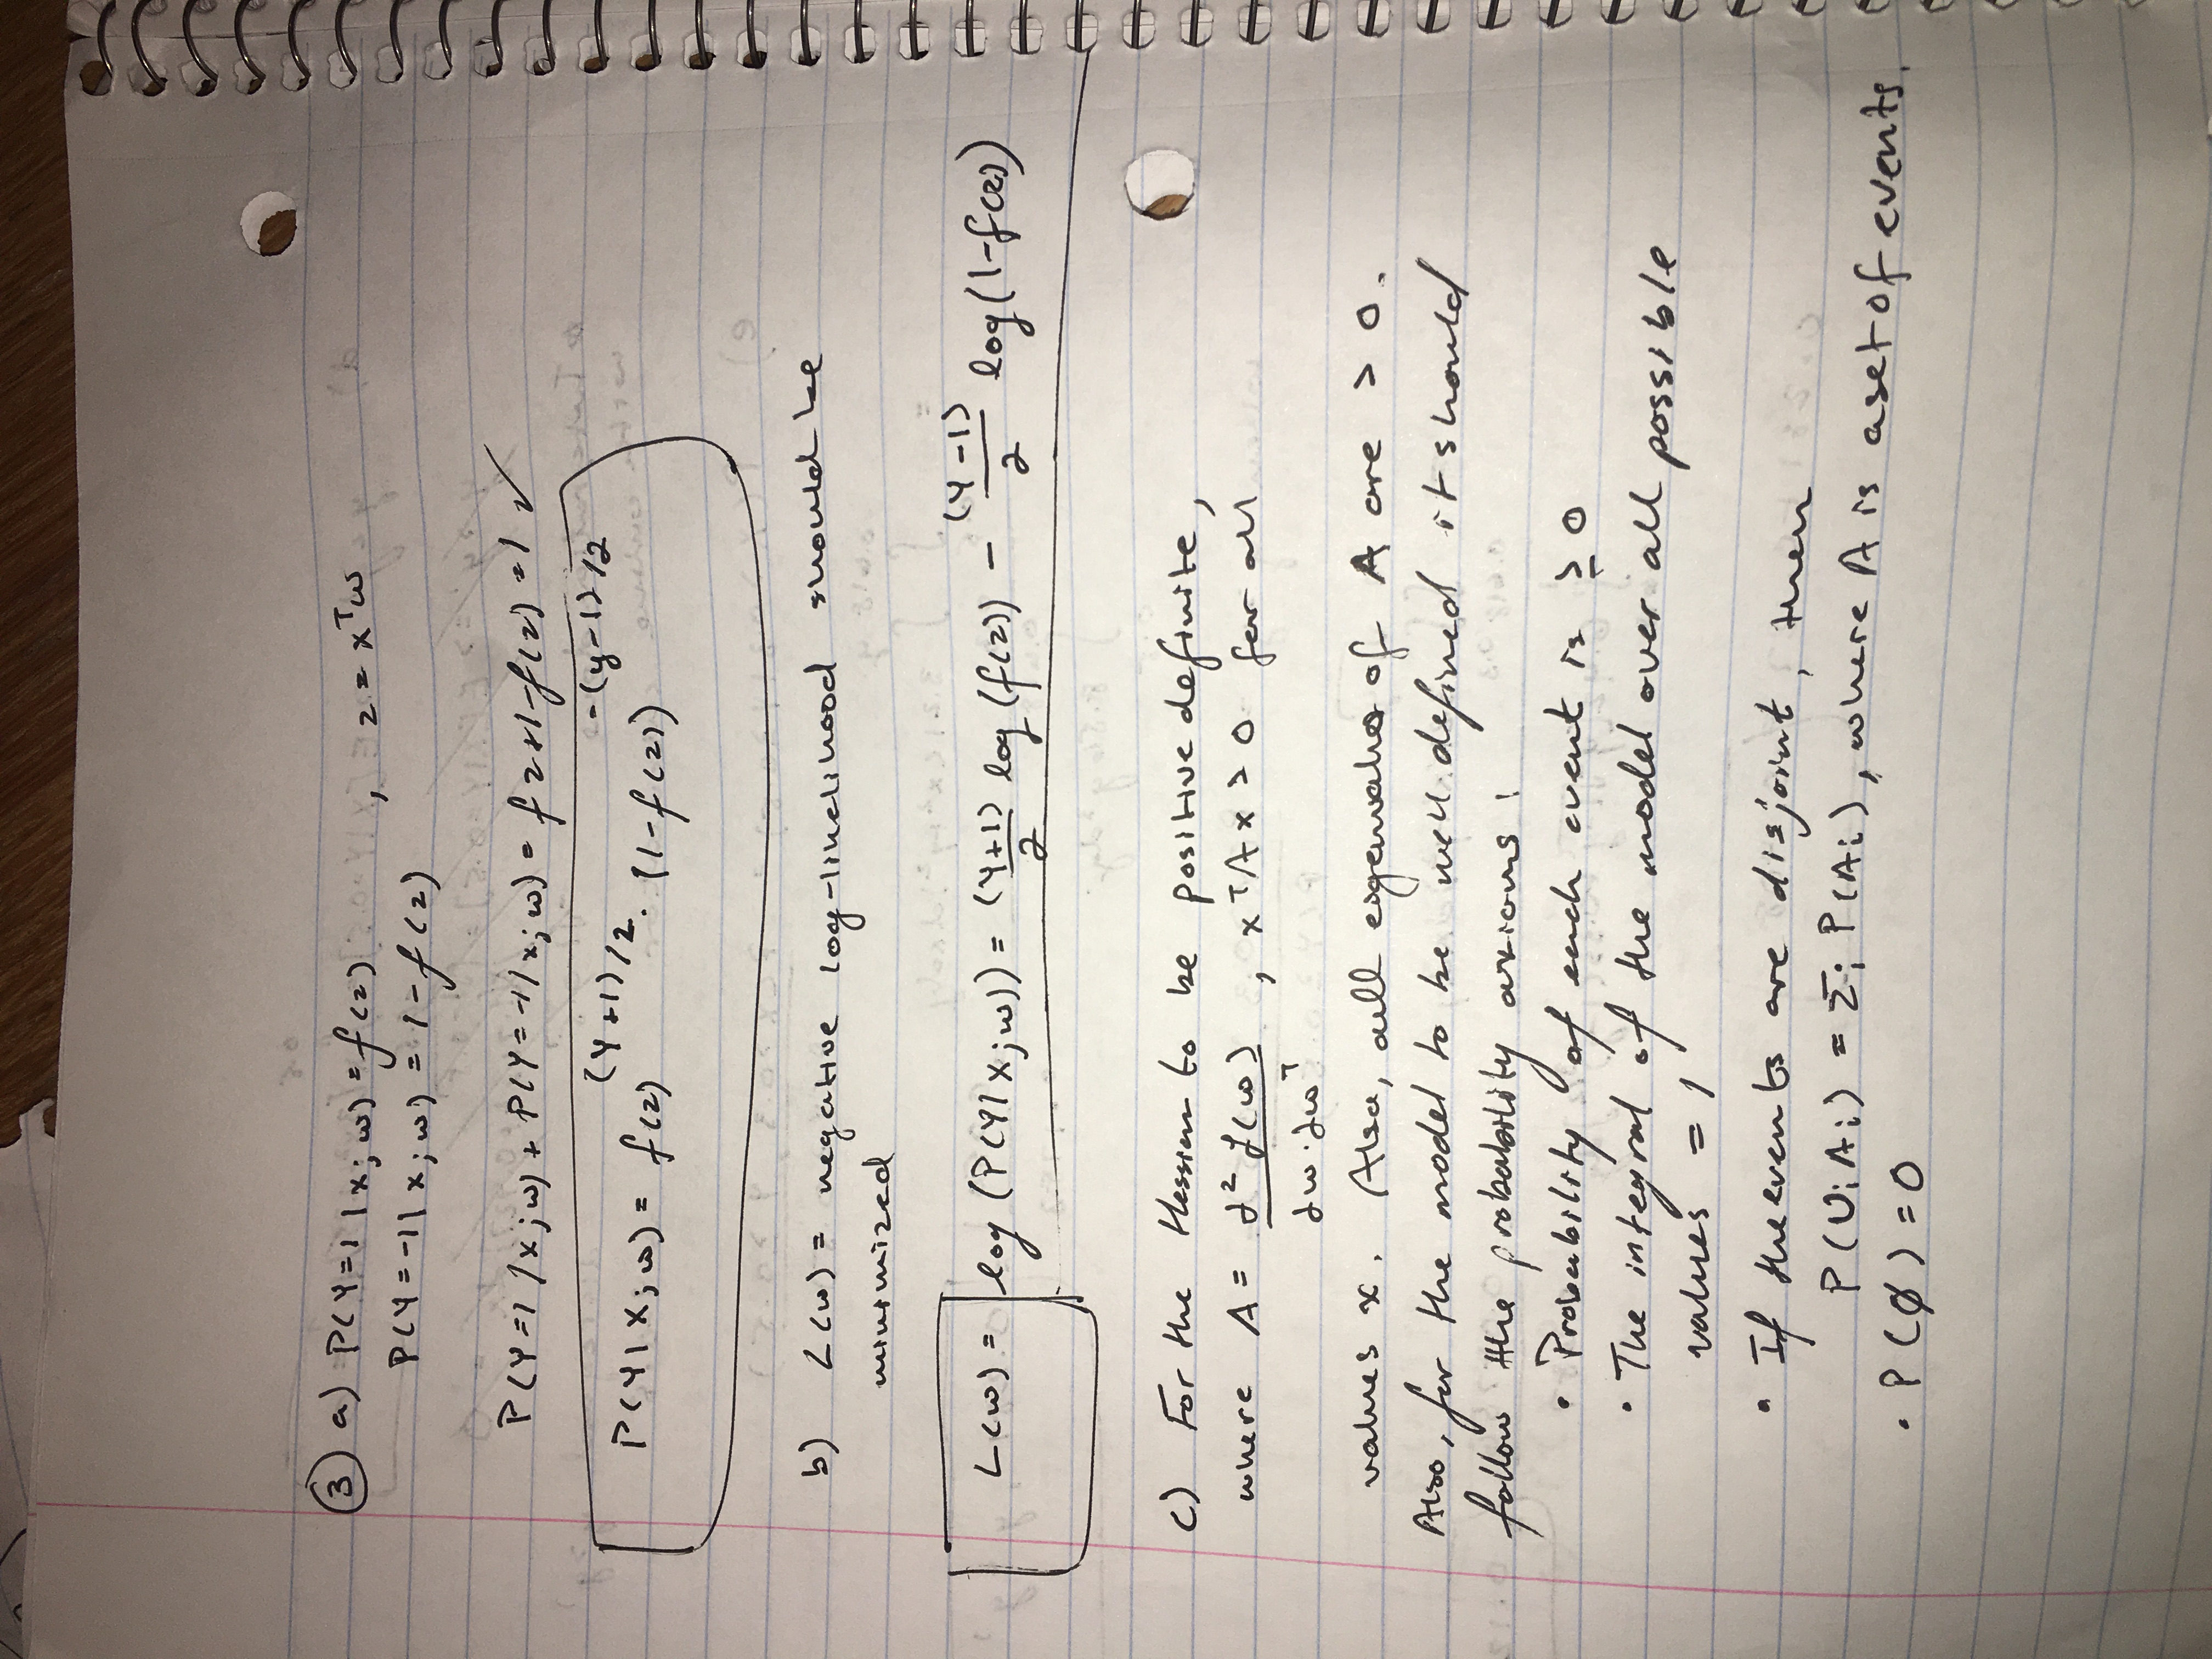 ③ a) P(Y=1|x;w) = f(z) , z = xᵀw
P(Y=-1|x;w) = 1-f(z)
P(Y=1/x;w) + P(Y=-1/x;w) = fz+1-f(z) = 1 ✓
P(Y|X;w) = f(z)^((Y+1)/2) · (1-f(z))^(-(y-1)/2)
b) L(w) = negative log-likelihood should be
minimized
L(w) = log (P(Y|X;w)) = (Y+1)/2 log (f(z)) - (Y-1)/2 log(1-f(z))
c) For the Hessian to be positive definite,
where A = ∂²L(w)/∂w·∂wᵀ , xᵀAx > 0 for all
values x. Also, all eigenvalues of A are > 0.
Also, for the model to be well defined it should
follow the probability axioms:
• Probability of each event is ≥ 0
• The integral of the model over all possible
values = 1
• If the events are disjoint, then
P(∪ᵢAᵢ) = Σᵢ P(Aᵢ), where A is a set of events.
• P(∅) = 0